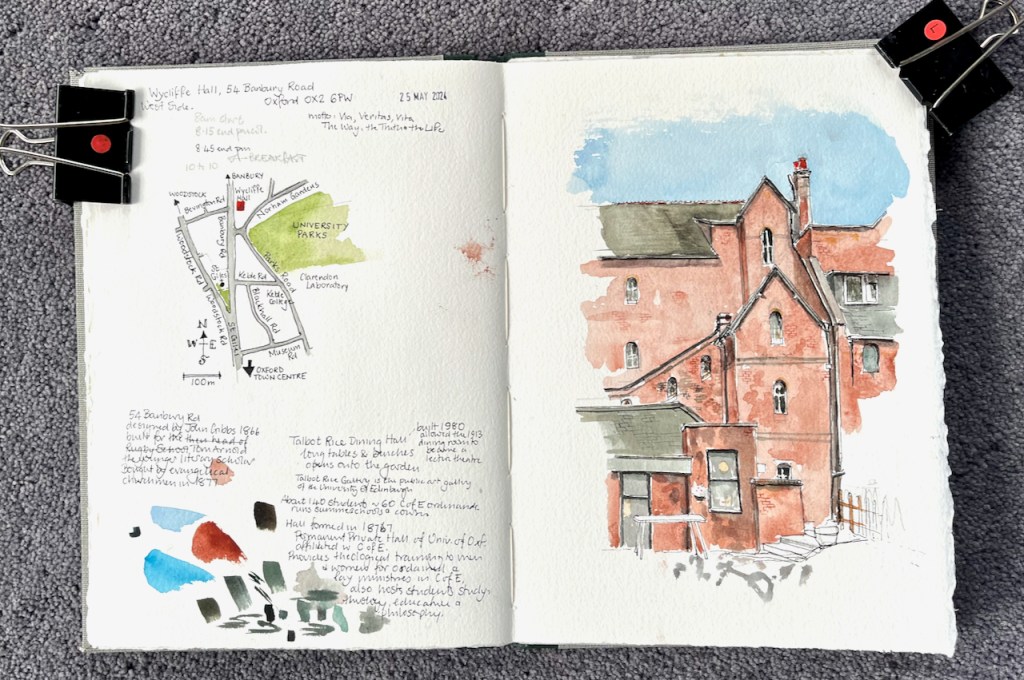 Wycliffe Hall, 54 Banbury Road
Oxford OX2 6PW
25 MAY 2024
West Side.
motto - Via, Veritas, Vita
The Way, the Truth & the Life
8am start
8.15 end pencil.
8.45 end pen
BREAKFAST
BANBURY
WOODSTOCK
Wycliffe
Hall
Bevington Rd
Norham Gardens
UNIVERSITY
PARKS
Banbury Rd
Woodstock Rd
Parks Road
Keble Rd
Clarendon
Laboratory
Keble
College
Blackhall Rd
Woodstock Rd
St Giles
Museum
Rd
N
W
E
S
100m
OXFORD
TOWN CENTRE
54 Banbury Rd
designed by John Gibbs 1866
built for the then head of
Rugby School Tom Arnold
the younger literary scholar
bought by evangelical
churchmen in 1877
Talbot Rice Dining Hall
long tables & benches
opens onto the garden
built 1980
allowed the 1913
dining room to
become a
lecture theatre
Talbot Rice Gallery is the public art gallery
of the University of Edinburgh
About 140 students ~ 60 C of E ordinands
runs summer schools &
Hall formed in 1877
Permanent Private Hall of Univ. of Oxf.
affiliated w C of E.
Provides theological training to men
& women for ordained &
lay ministries in C of E,
also hosts students study
history, education &
philosophy.
L